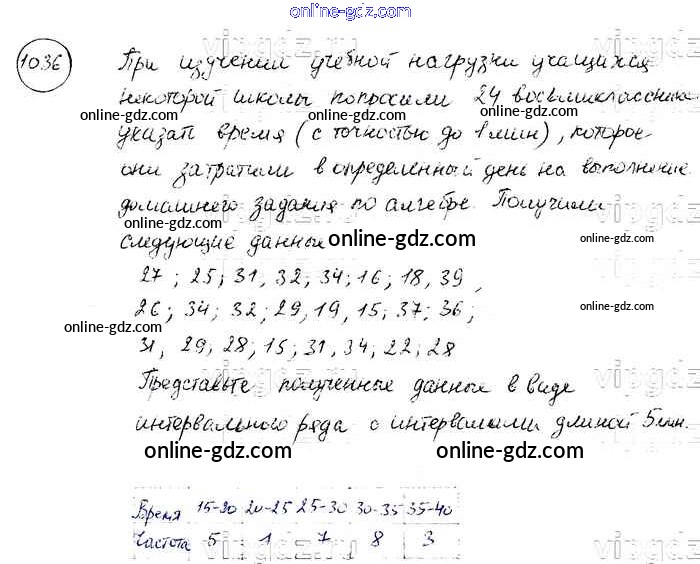 online-gdz.com
1036 При изучении учебной нагрузки учащихся
некоторой школы попросили 24 восьмиклассника
указать время (с точностью до 1 мин), которое
они затратили в определенный день на выполнение
домашнего задания по алгебре. Получили
следующие данные
27; 25; 31, 32; 34; 16; 18, 39,
26; 34; 32; 29, 19, 15; 37; 36;
31, 29; 28; 15; 31, 34; 22; 28
Представьте полученные данные в виде
интервального ряда с интервалами длиной 5 мин.
Время 15-20 20-25 25-30 30-35 35-40
Частота 5 1 7 8 3
online-gdz.com
online-gdz.com
online-gdz.com
online-gdz.com
online-gdz.com
online-gdz.com
online-gdz.com
online-gdz.com
online-gdz.com
online-gdz.com
online-gdz.com
online-gdz.com